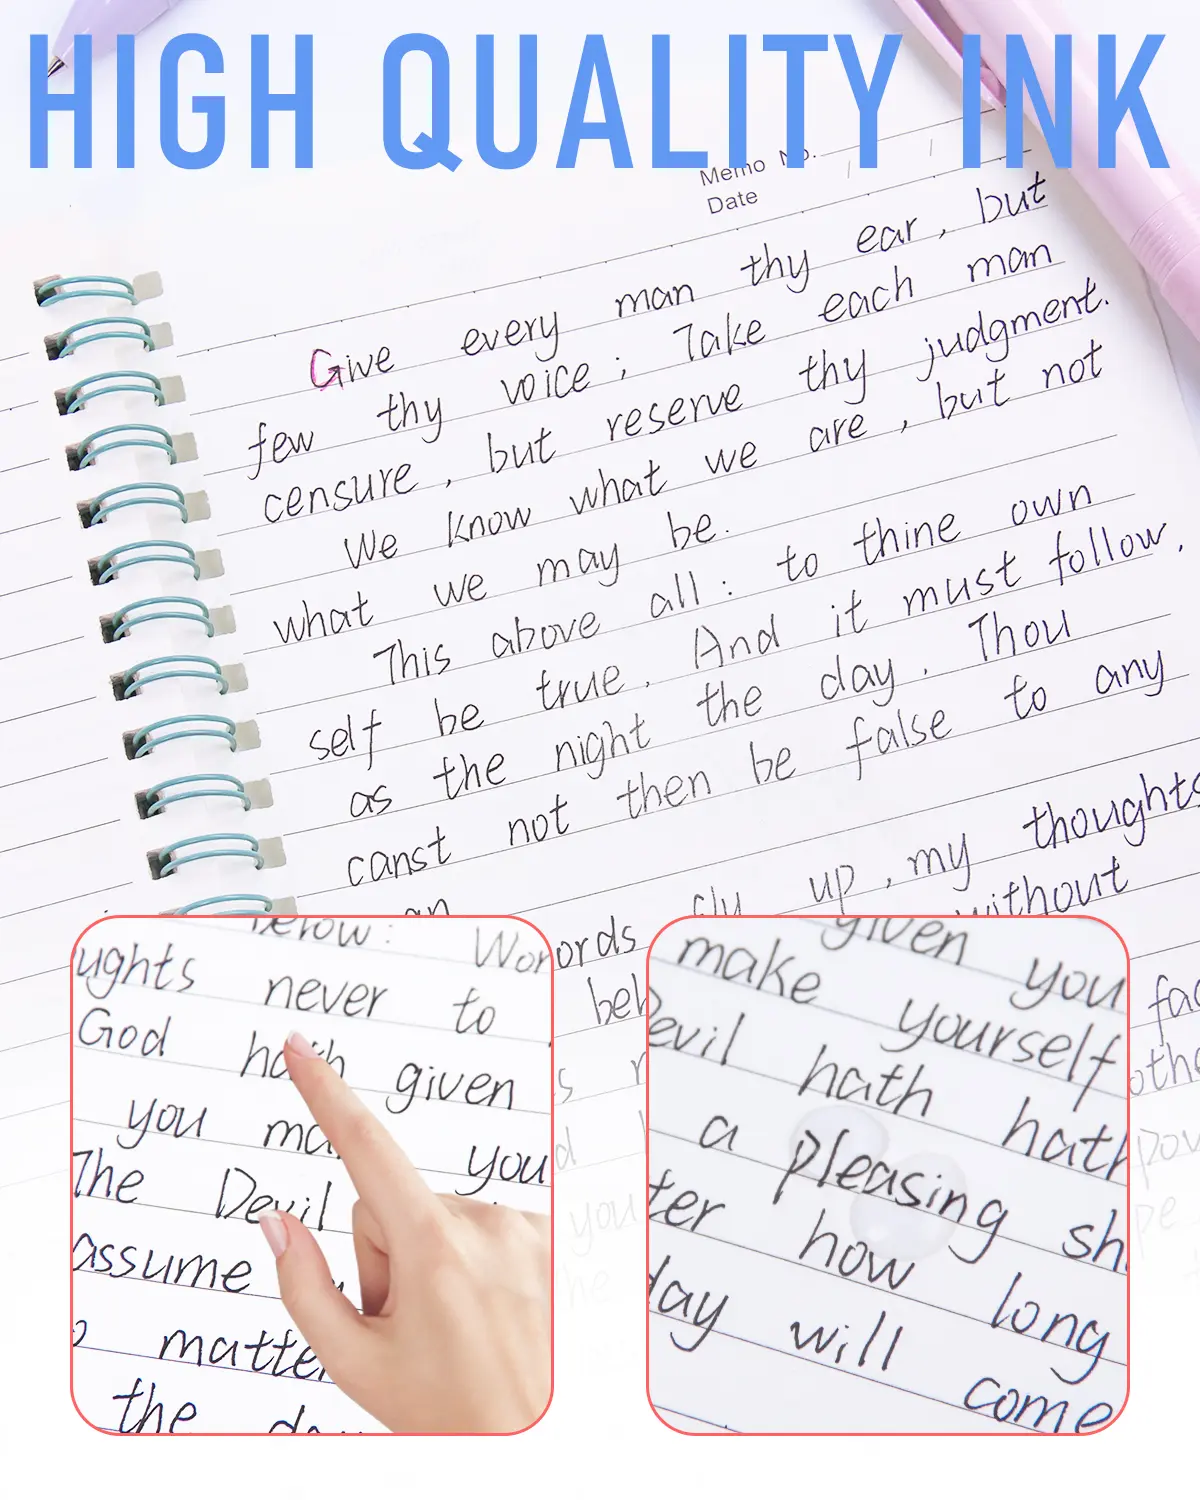 HIGH QUALITY INK
Memo No.
Date
Give every man thy ear, but
few thy voice; Take each man
censure, but reserve thy judgment.
We know what we are, but not
what we may be.
This above all: to thine own
self be true. And it must follow,
as the night the day. Thou
canst not then be false to any
an
ords fly up, my thoughts
without
below: Wor
ughts never to
God hath given
you ma you
The Devil
assume
matte
the
given you
make yourself
Devil hath hath
a pleasing sh
ter how long
day will come